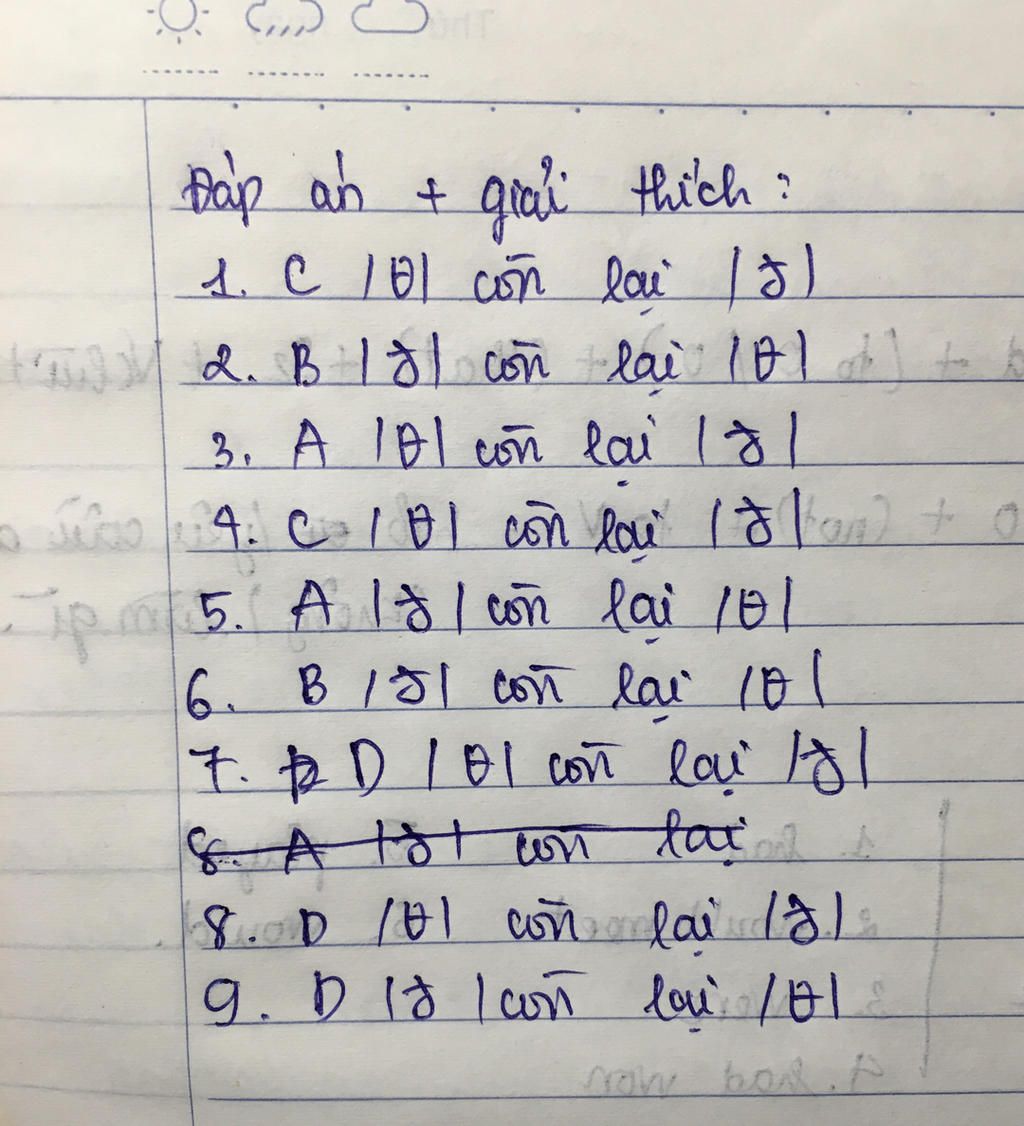 Đáp án + giải thích:
1. C /θ/ còn lại /ð/
2. B /ð/ còn lại /θ/
3. A /θ/ còn lại /ð/
4. C /θ/ còn lại /ð/
5. A /ð/ còn lại /θ/
6. B /ð/ còn lại /θ/
7. D /θ/ còn lại /ð/
8. A /ð/ còn lại
8. D /θ/ còn lại /ð/
9. D /ð/ còn lại /θ/